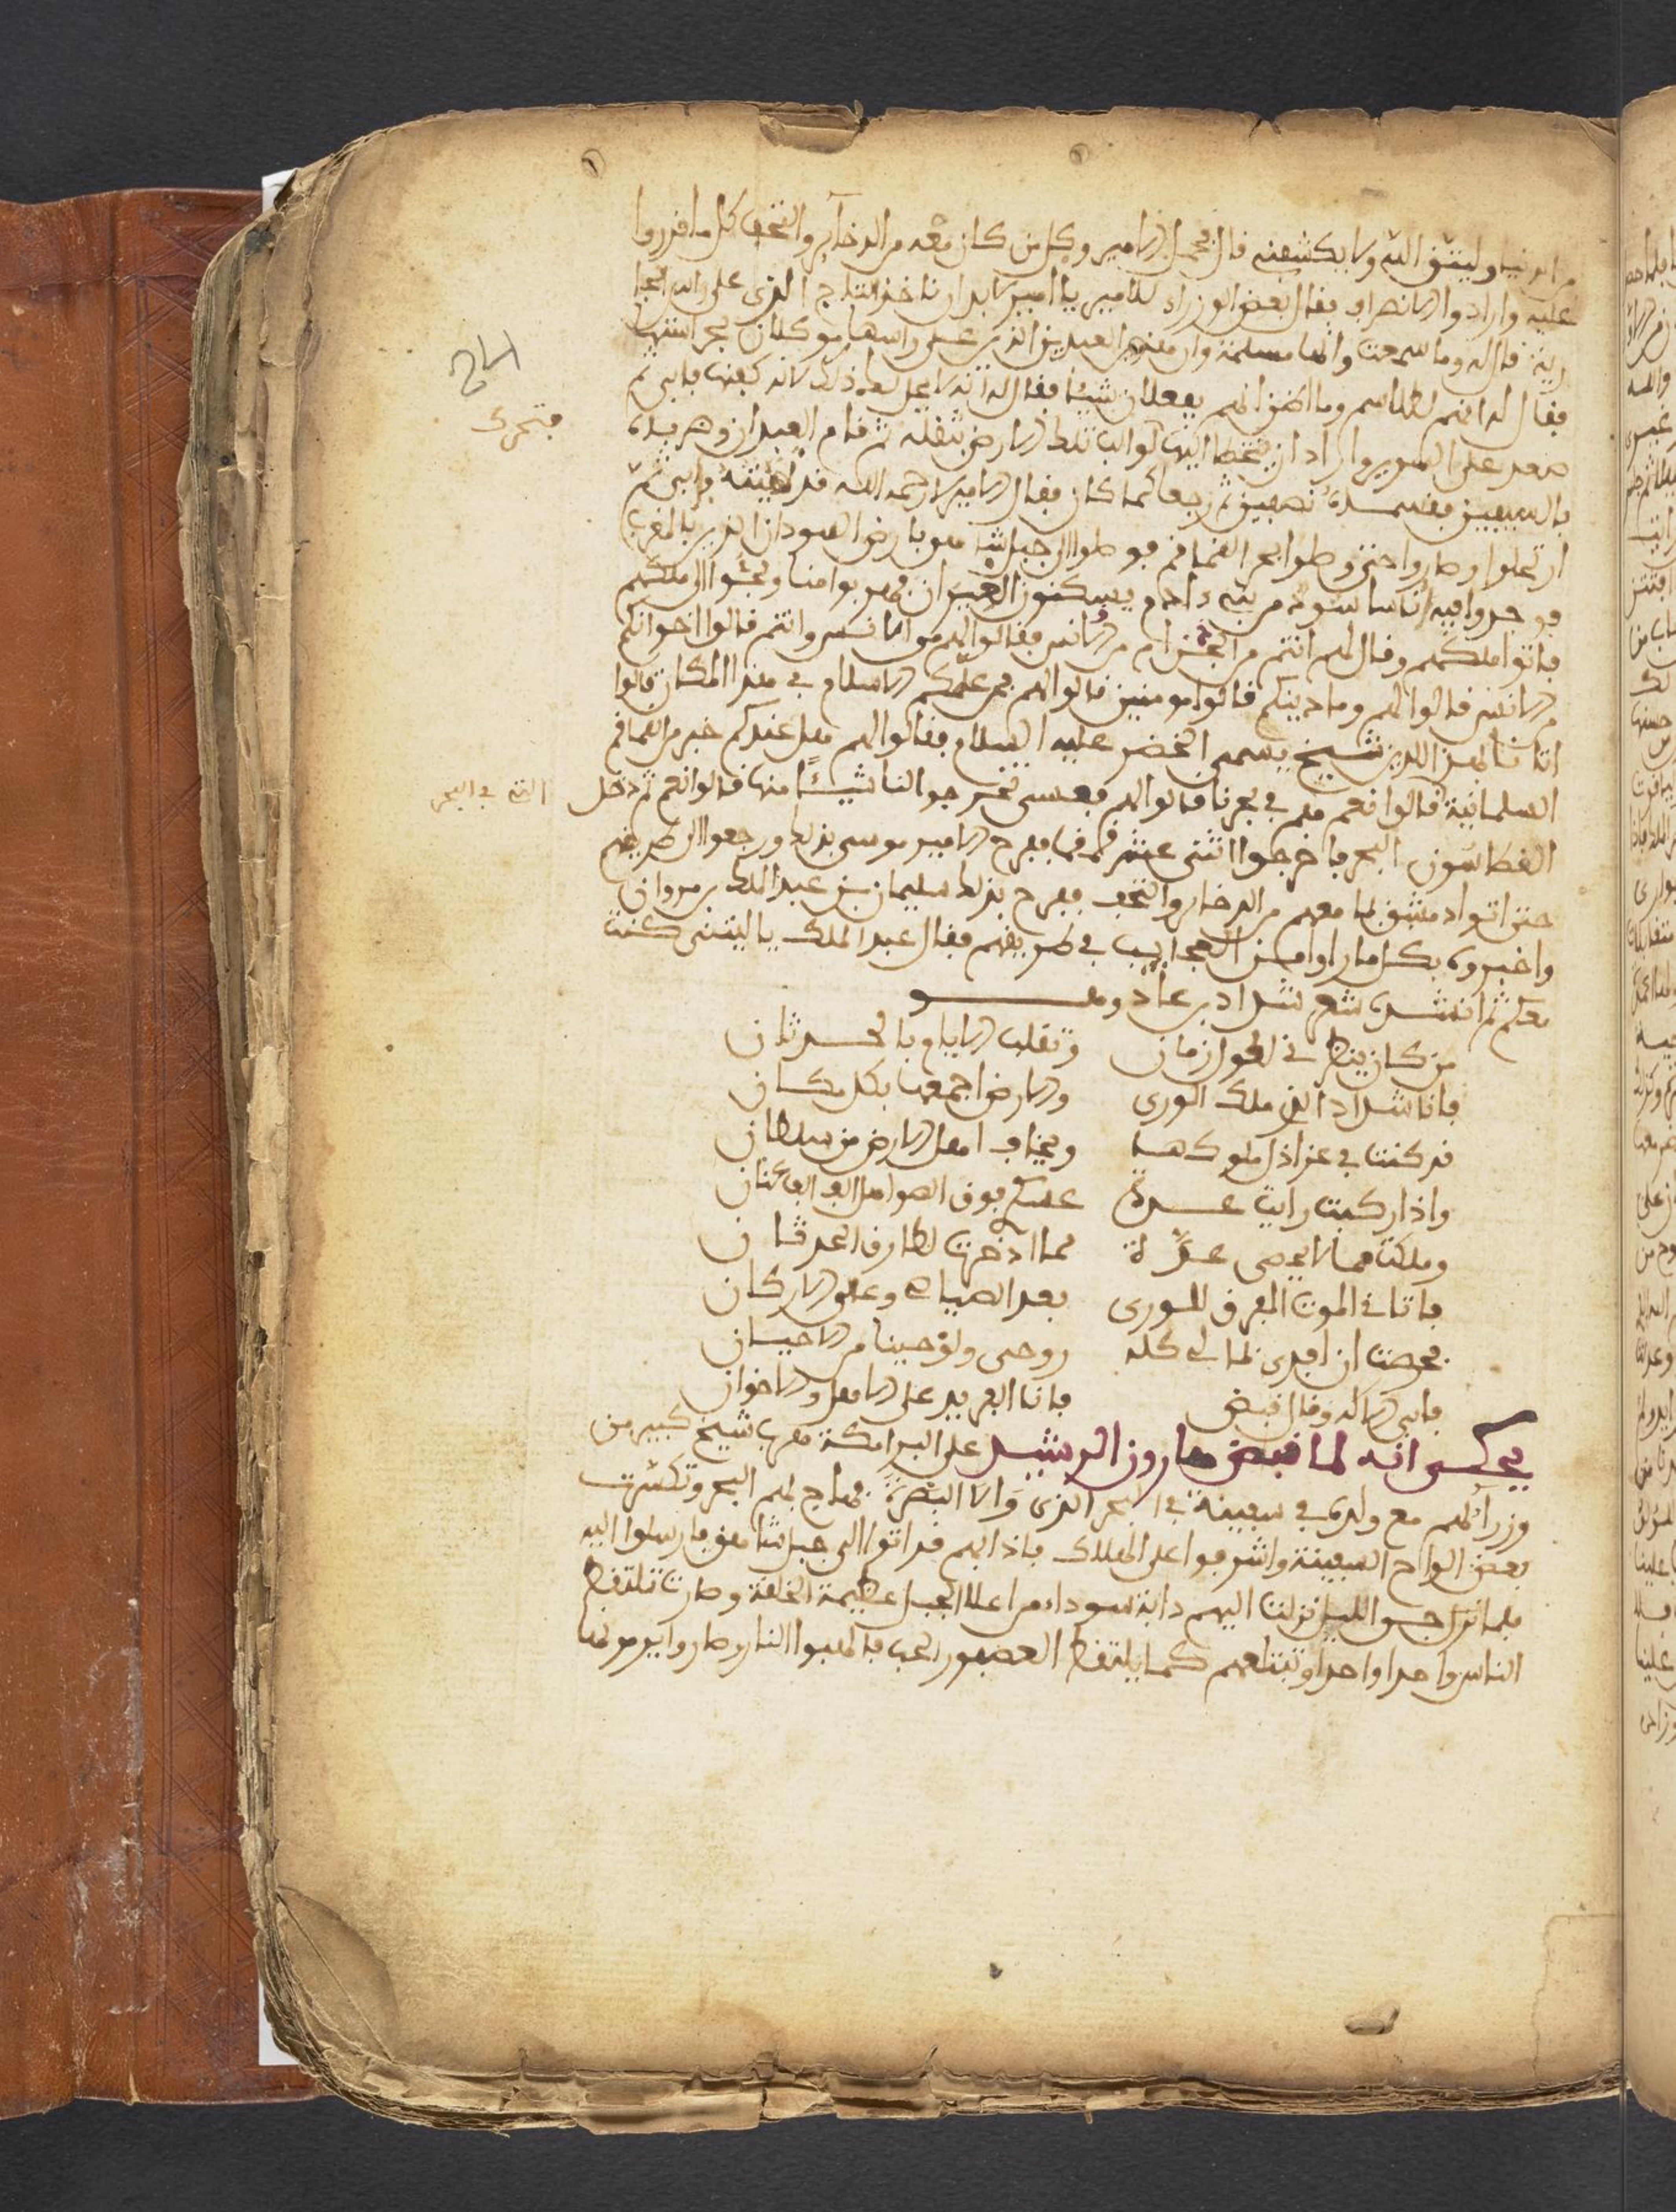 من الدنيا وليتق الله ولا يكشفنه قال فحمل الامير وكل من كان معه من الدخاير والتحف كل ما قدروا
عليه وارادوا الانصراف فقال بعض الوزراء للامير يا امير لابد ان ناخذ التاج الذي على راس الجا
رية قال له وما سمعت وانها مسلمة وان هذين العبدين الذي عند راسها موكلان بحراستها
فقال له انهم طلاسم وما اظن انهم يفعلان شيئا فقال له انه لا يحل لك ذلك لانه كفنها فابى ثم
صعد على السرير واراد ان يتخطا اليها لوالب تلك الارض بثقله ثم قام العبدان وضرباه
فتحرك
بالسيفين فقسماه نصفين ثم رجعا كما كان فقال الامير لا رحمه الله قد نهيته فابى ثم
ارتحلوا وصاروا حتى وصلوا بحر القماقم فوصلوا الى جبل شاهق بارض السودان الذي بالمغرب
فوجدوا فيه اناسا سود من بني ءادم ويسكنون الغيران فهربوا منا ولجئوا الى ملكهم
فاتوا ملكهم وقال لهم انتم من الجن ام من الانس فقالوا لهم اما نحن وانتم قالوا اخوانكم
من الانس قالوا لهم وما دينكم قالوا مومنين قالوا لهم من علمكم الاسلام في هذا المكان قالوا
اتانا بهذا الدين شيخ يسمى الخضر عليه السلام فقالوا لهم هل عندكم خبر من القماقم
السليمانية قالوا نعم هم في بحرنا قالوا لهم فعسى تخرجوا لنا شيئا منها قالوا نعم ثم دخل
الغطاسون البحر فاخرجوا اثنى عشر قمقما ففرح الامير موسى بذلك ورجعوا الى طريقهم
التي في البحر
حتى اتوا دمشق بما معهم من الدخاير والتحف ففرح بذلك سليمان بن عبد الملك بن مروان
واخبروه بكل ما راوا من العجايب في طريقهم فقال عبد الملك يا ليتني كنت
معكم ثم انشده شعر شداد بن عاد وهو
من كان ينظر في لطول زمان وتقلب الايام بالحدثان
فانا شداد الذي ملك الورى والارض اجمعها بكل مكان
قد كنت في عز اذل ملوكها ويخاف اهل الارض من سلطان
واذا ركبت رايت عدة عسكر فوق الصواهل الف الف عنان
وملكت مما لا يحصى عده مما ادخرت لطارق الحدثان
فاتانى الموت المفرق للورى بعد الصياصى وعلو الاركان
فحرصت ان افدى بما لي كله روحى ولو حينا من الاحيان
فابى الاله وقال قبض فانا الفريد على الاهل والاخوان
يحكى انه لما قبض هارون الرشيد على البرامكة هرب شيخ كبير من
وزرائهم مع ولده في سفينة في البحر الذى والا البصرة فهاج بهم البحر وتكسرت
بعض الواح السفينة واشرفوا على الهلاك فاذا بهم قد اتوا الى جبل شاهق فارسلوا اليه
فلما نزل جو الليل نزلت اليهم دابة سوداء من اعلا الجبل عظيمة الخلقة وصارت تلتقط
الناس واحدا واحدا وتبتلعهم كما يلتقط العصفور الحب فالهبوا النار وصاروا يرمونها